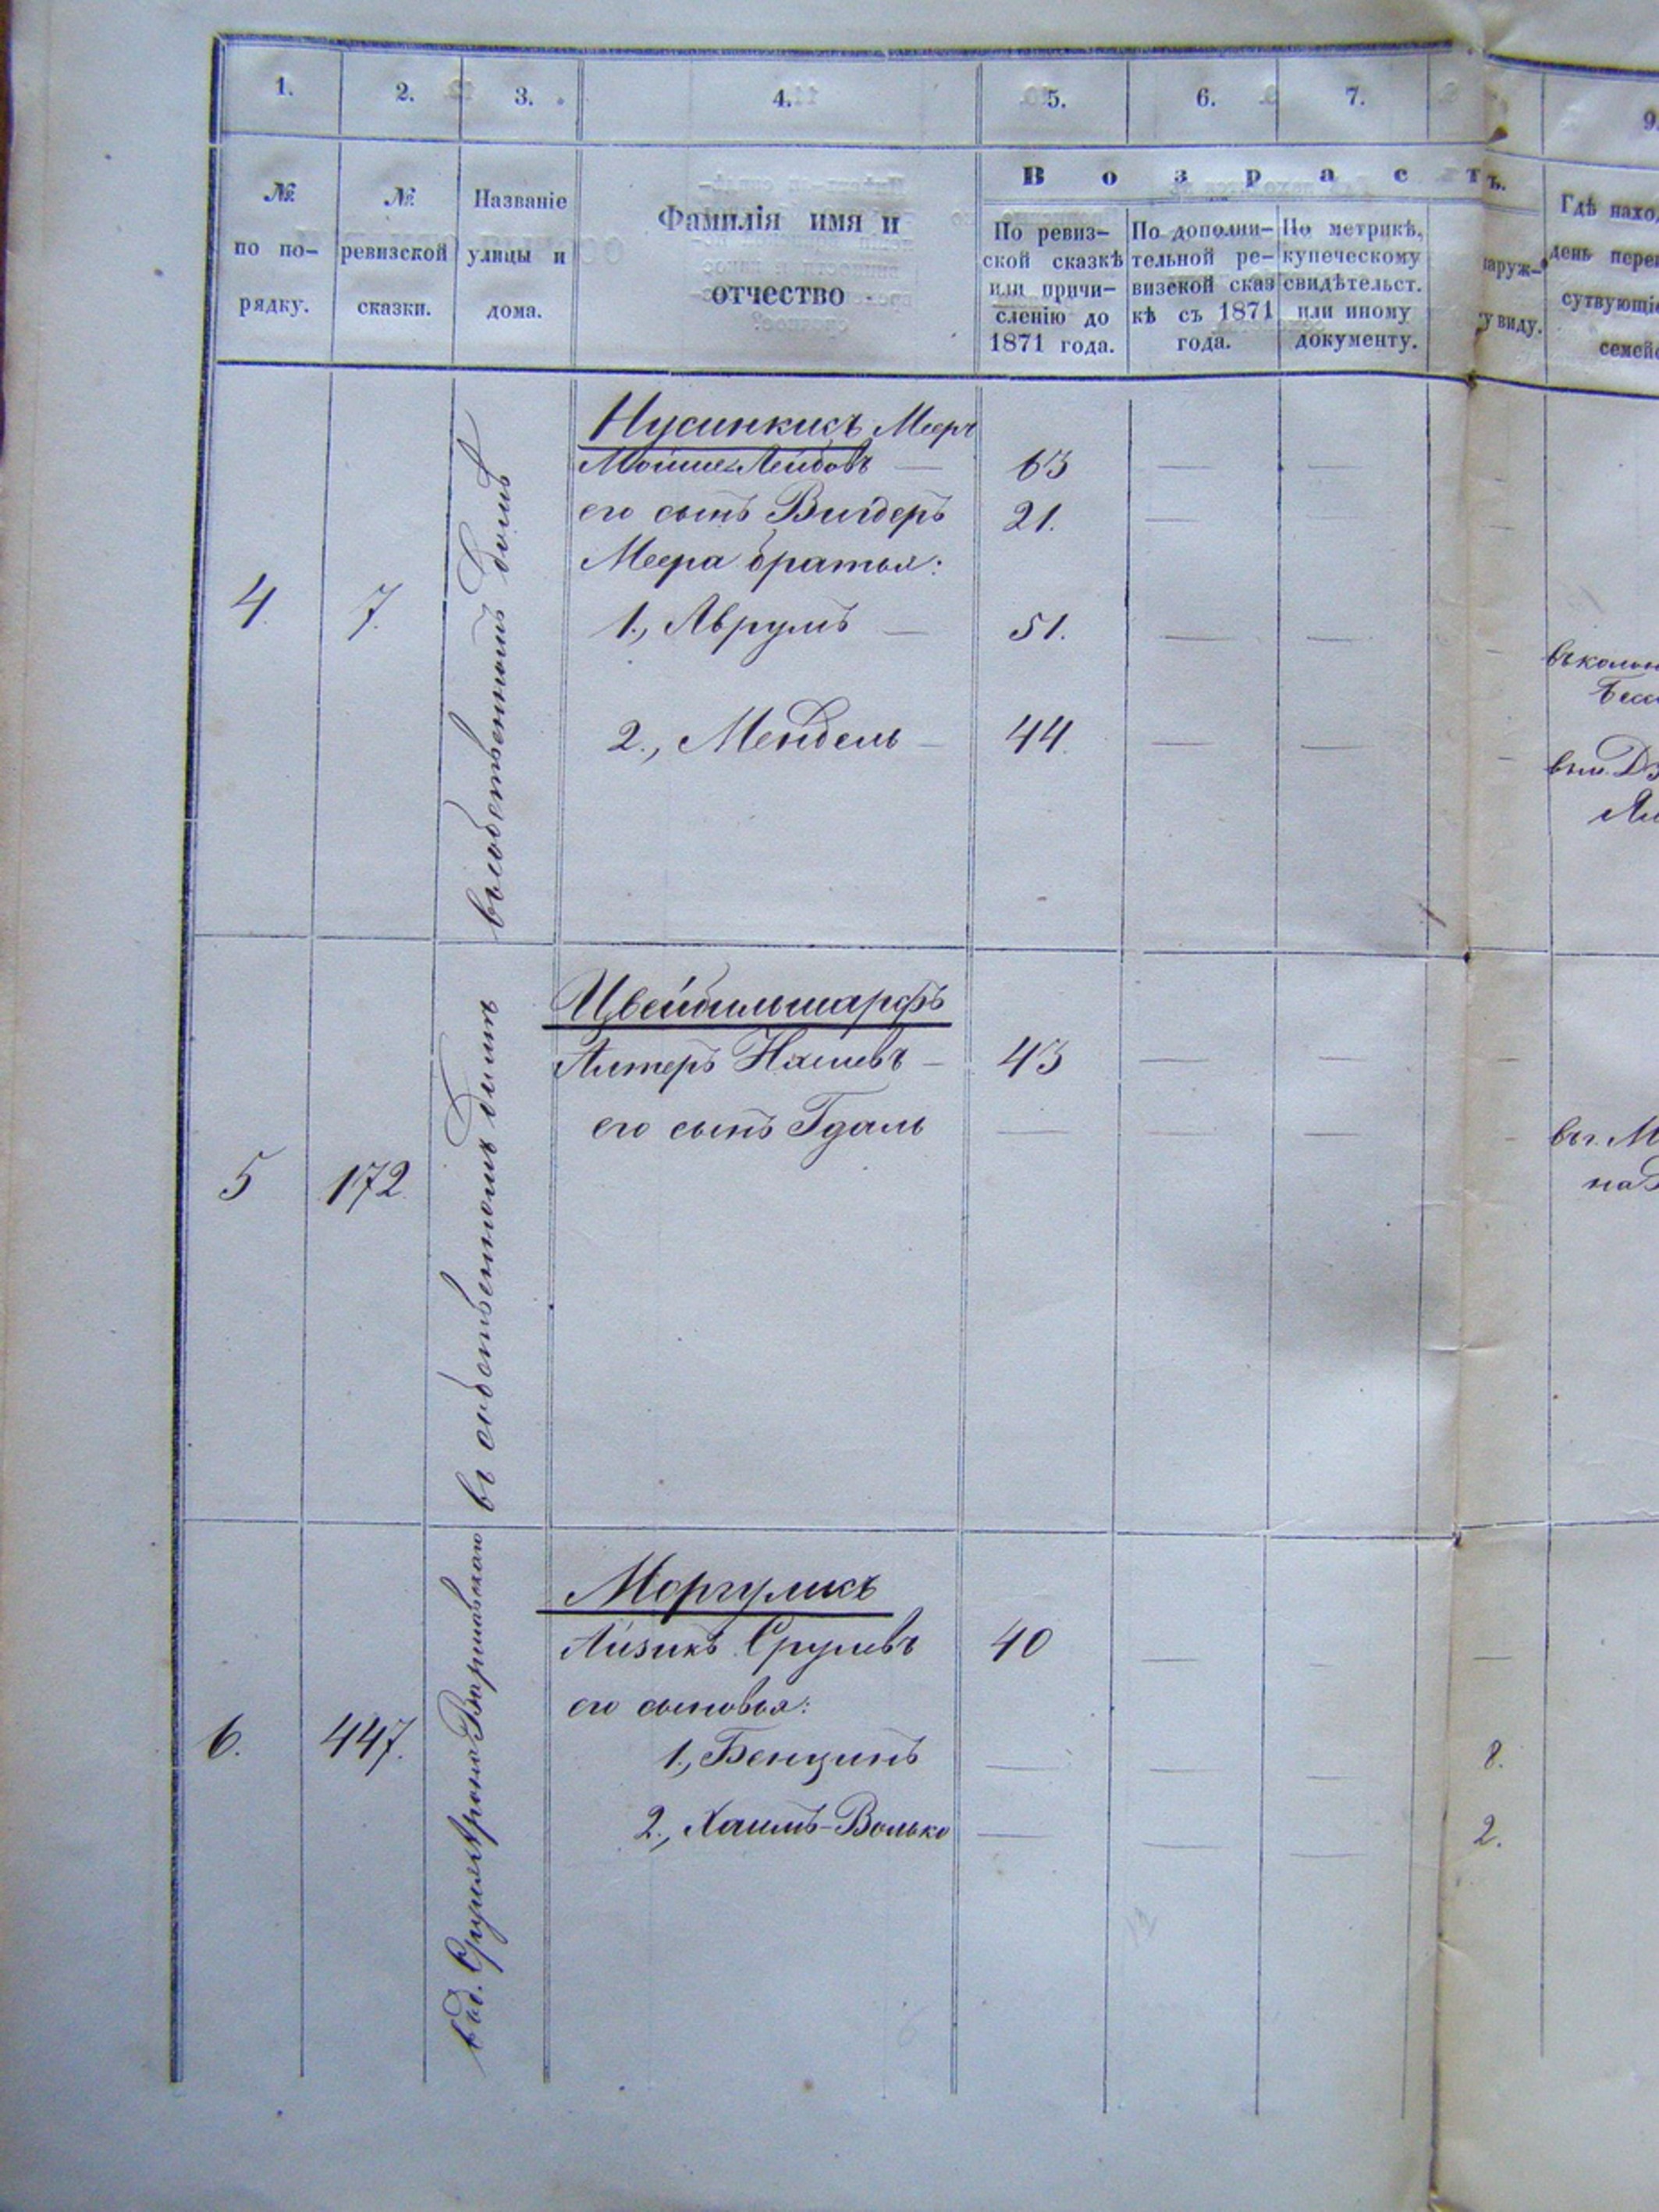 1. 2. 3. 4. 5. 6. 7. 9.
№ по по-
рядку.
№ ревизской
сказки.
Названіе
улицы и
дома.
Фамилія имя и
отчество
Возрастъ.
По ревиз-
ской сказкѣ
или причи-
сленію до
1871 года.
По дополни-
тельной ре-
визской сказ
кѣ съ 1871
года.
По метрикѣ,
купеческому
свидѣтельст.
или иному
документу.
наруж-
у виду.
Гдѣ наход
день переп
сутвующіе
семейс
4. 7. въ собственномъ домѣ
Нусинкисъ Меер
Мойше Лейбовъ — 63 — —
его сынъ Вигдеръ 21. — —
Меера братья:
1., Аврумъ — 51. — — —
въ колон
Бесс
2., Мендель — 44. — — —
5 172. въ собственномъ домѣ
Цвейбильшарфъ
Алтеръ — 43 — — —
его сынъ Гдаль — — — —
въ г. М
6. 447. в дод.
Моргулисъ
Айзикъ Срулевъ 40 — — —
его сыновья:
1., Бенционъ — — — 8.
2., Хаимъ-Волько — — — 2.